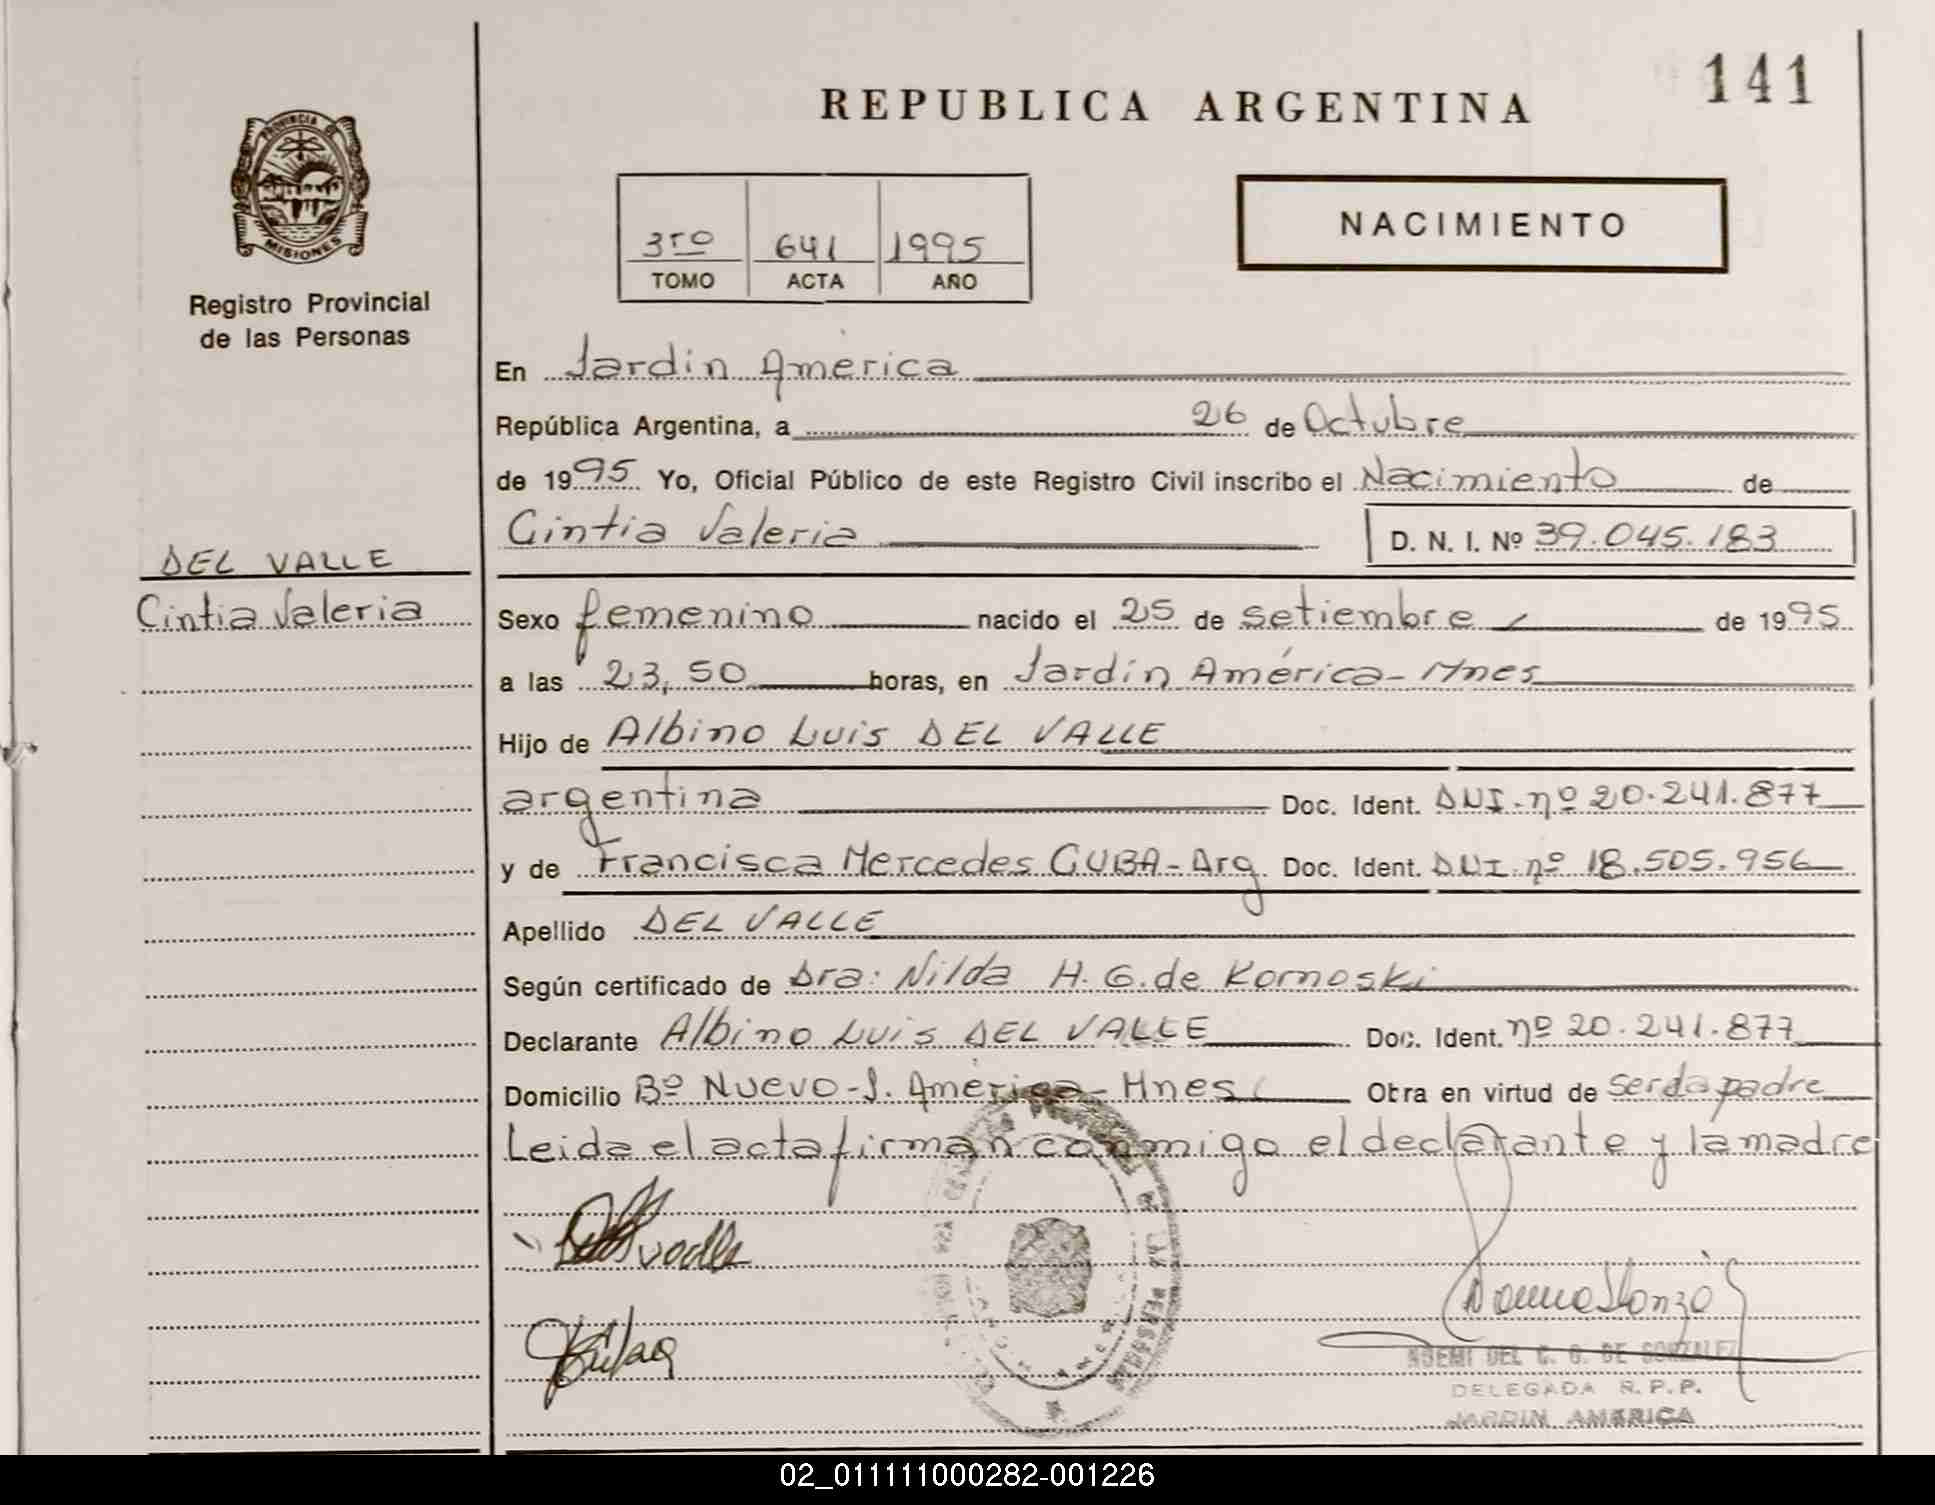 REPUBLICA ARGENTINA
141
PROVINCIA DE
MISIONES
Registro Provincial
de las Personas
3ro 641 1995
TOMO ACTA AÑO
NACIMIENTO
En Jardin América
República Argentina, a 26 de Octubre
de 1995 Yo, Oficial Público de este Registro Civil inscribo el Nacimiento de
Cintia Valeria D. N. I. Nº 39.045.183
DEL VALLE
Cintia Valeria
Sexo femenino nacido el 25 de setiembre de 1995
a las 23,50 horas, en Jardin América - Mnes
Hijo de Albino Luis DEL VALLE
argentina Doc. Ident. DNI. nº 20.241.877
y de Francisca Mercedes CUBA - Arg Doc. Ident. DNI. nº 18.505.956
Apellido DEL VALLE
Según certificado de Dra: Nilda H. G. de Kornoski
Declarante Albino Luis DEL VALLE Doc. Ident. nº 20.241.877
Domicilio Bº Nuevo - J. América - Mnes Otra en virtud de ser da padre
Leida el acta firman conmigo el declarante y la madre
NOEMI DEL C. G. DE GONZALEZ
DELEGADA R.P.P.
JARDIN AMERICA
02_011111000282-001226